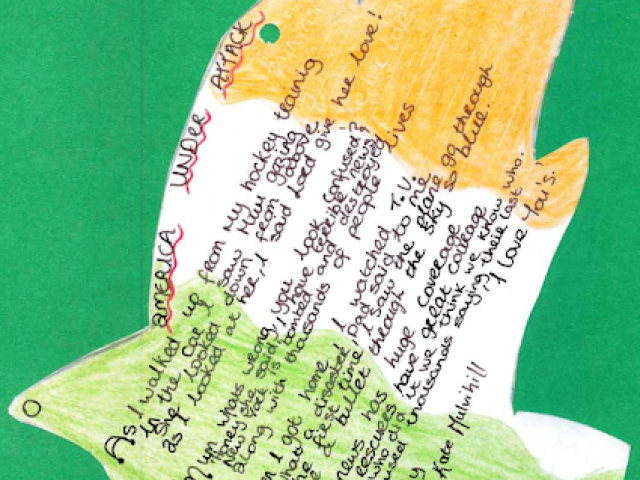 AMERICA UNDER ATTACK
As I walked up from My hockey trainig
In the car I saw Mum gasing
she looked down from above
as I looked at her, I said Lord give her love!
Mum whats wrong, you look confused?
Honey she said, I have terrible news
New York is bombed and destroyed
along with thousands of people lives
n I got home I watched T.V.
hat a disaster, Dad said to me
he first time, I saw the plane go through
e a bullet through the sky so blue.
news has huge coverage
rescuers have great courage
who did it we think we know
used thousands saying their last who.
I love You's.
y Kate Mulvihill